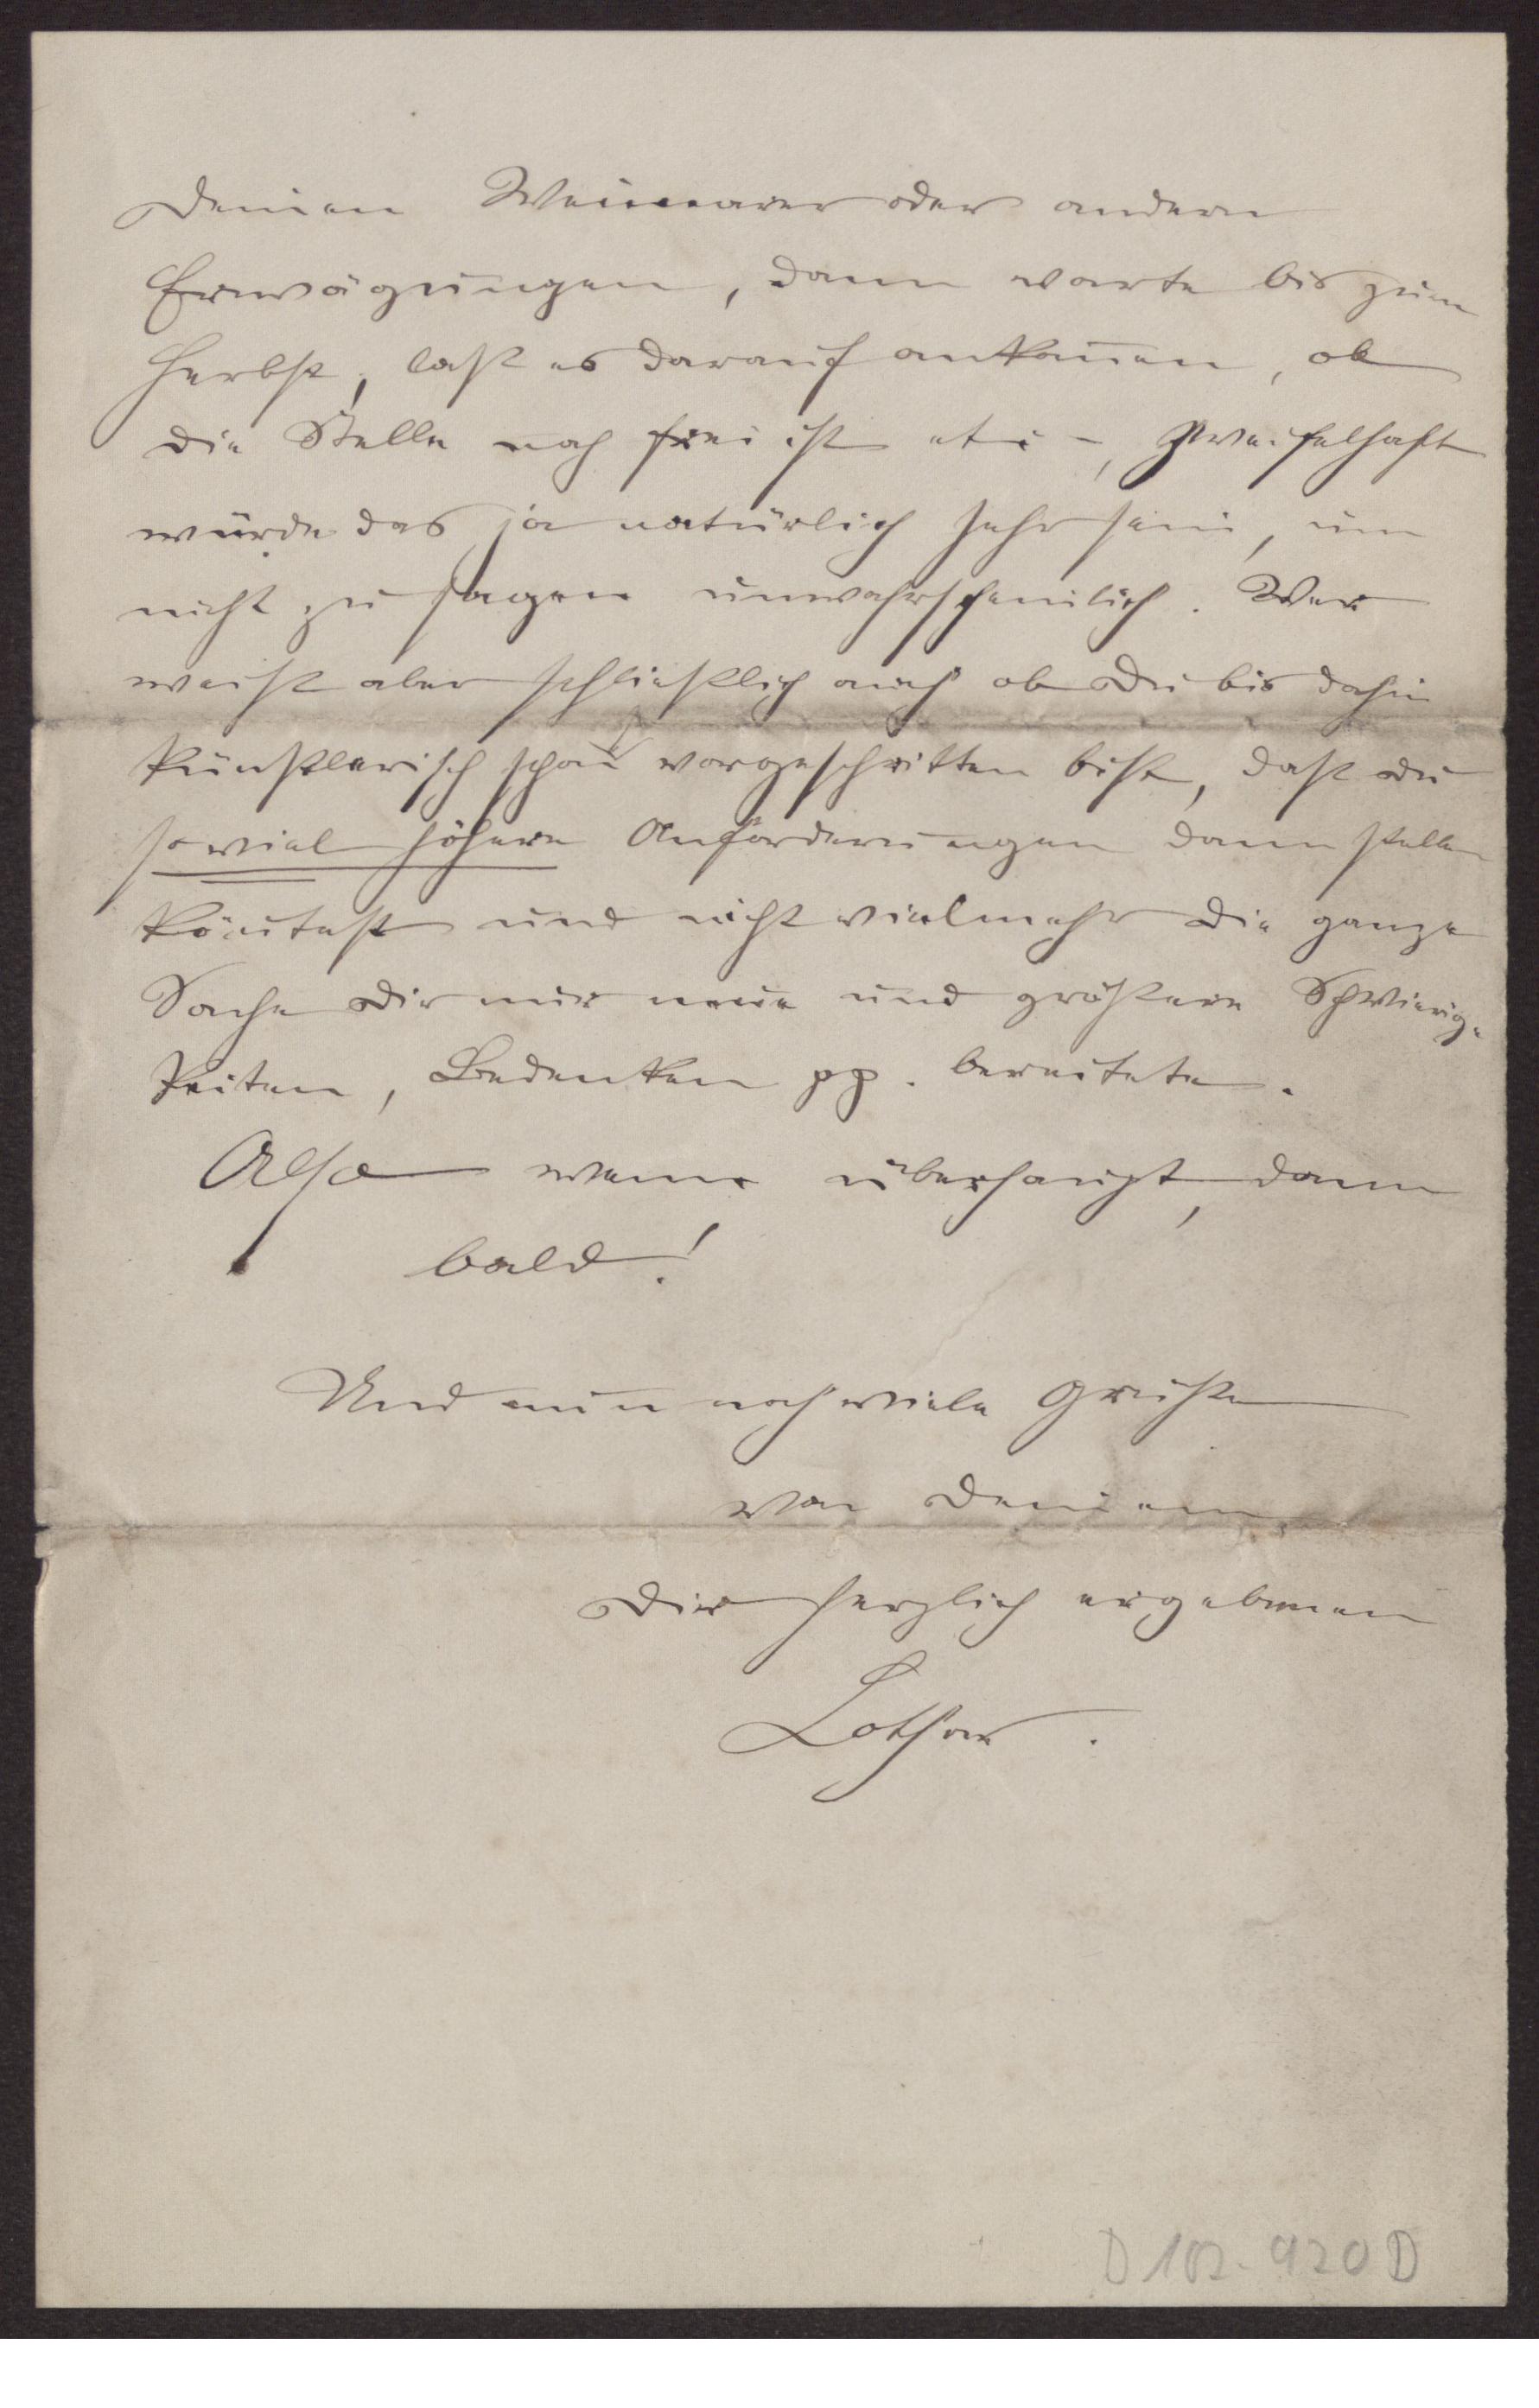 Deinen Weimarer oder andern
Erwägungen, dann warte bis zum
Herbst, laß es darauf ankom̅en, ob
die Stelle noch frei ist etc –, zweifelhaft
würde das ja natürlich sehr sein, um
nicht zu sagen unwahrscheinlich. Wer
weiß aber schließlich auch ob Du bis dahin
künstlerisch schon vorgeschritten bist, daß Du
soviel höhere Anforderungen dann stellen
kön̅test und nicht vielmehr die ganze
Sache Dir nur neue und größere Schwierig-
keiten, Bedenken pp. bereitete.
Also wenn überhaupt, dann
bald!
Und nun noch viele Grüße
von Deinem
Dir herzlich ergebenen
Lothar.
D 102-920 D